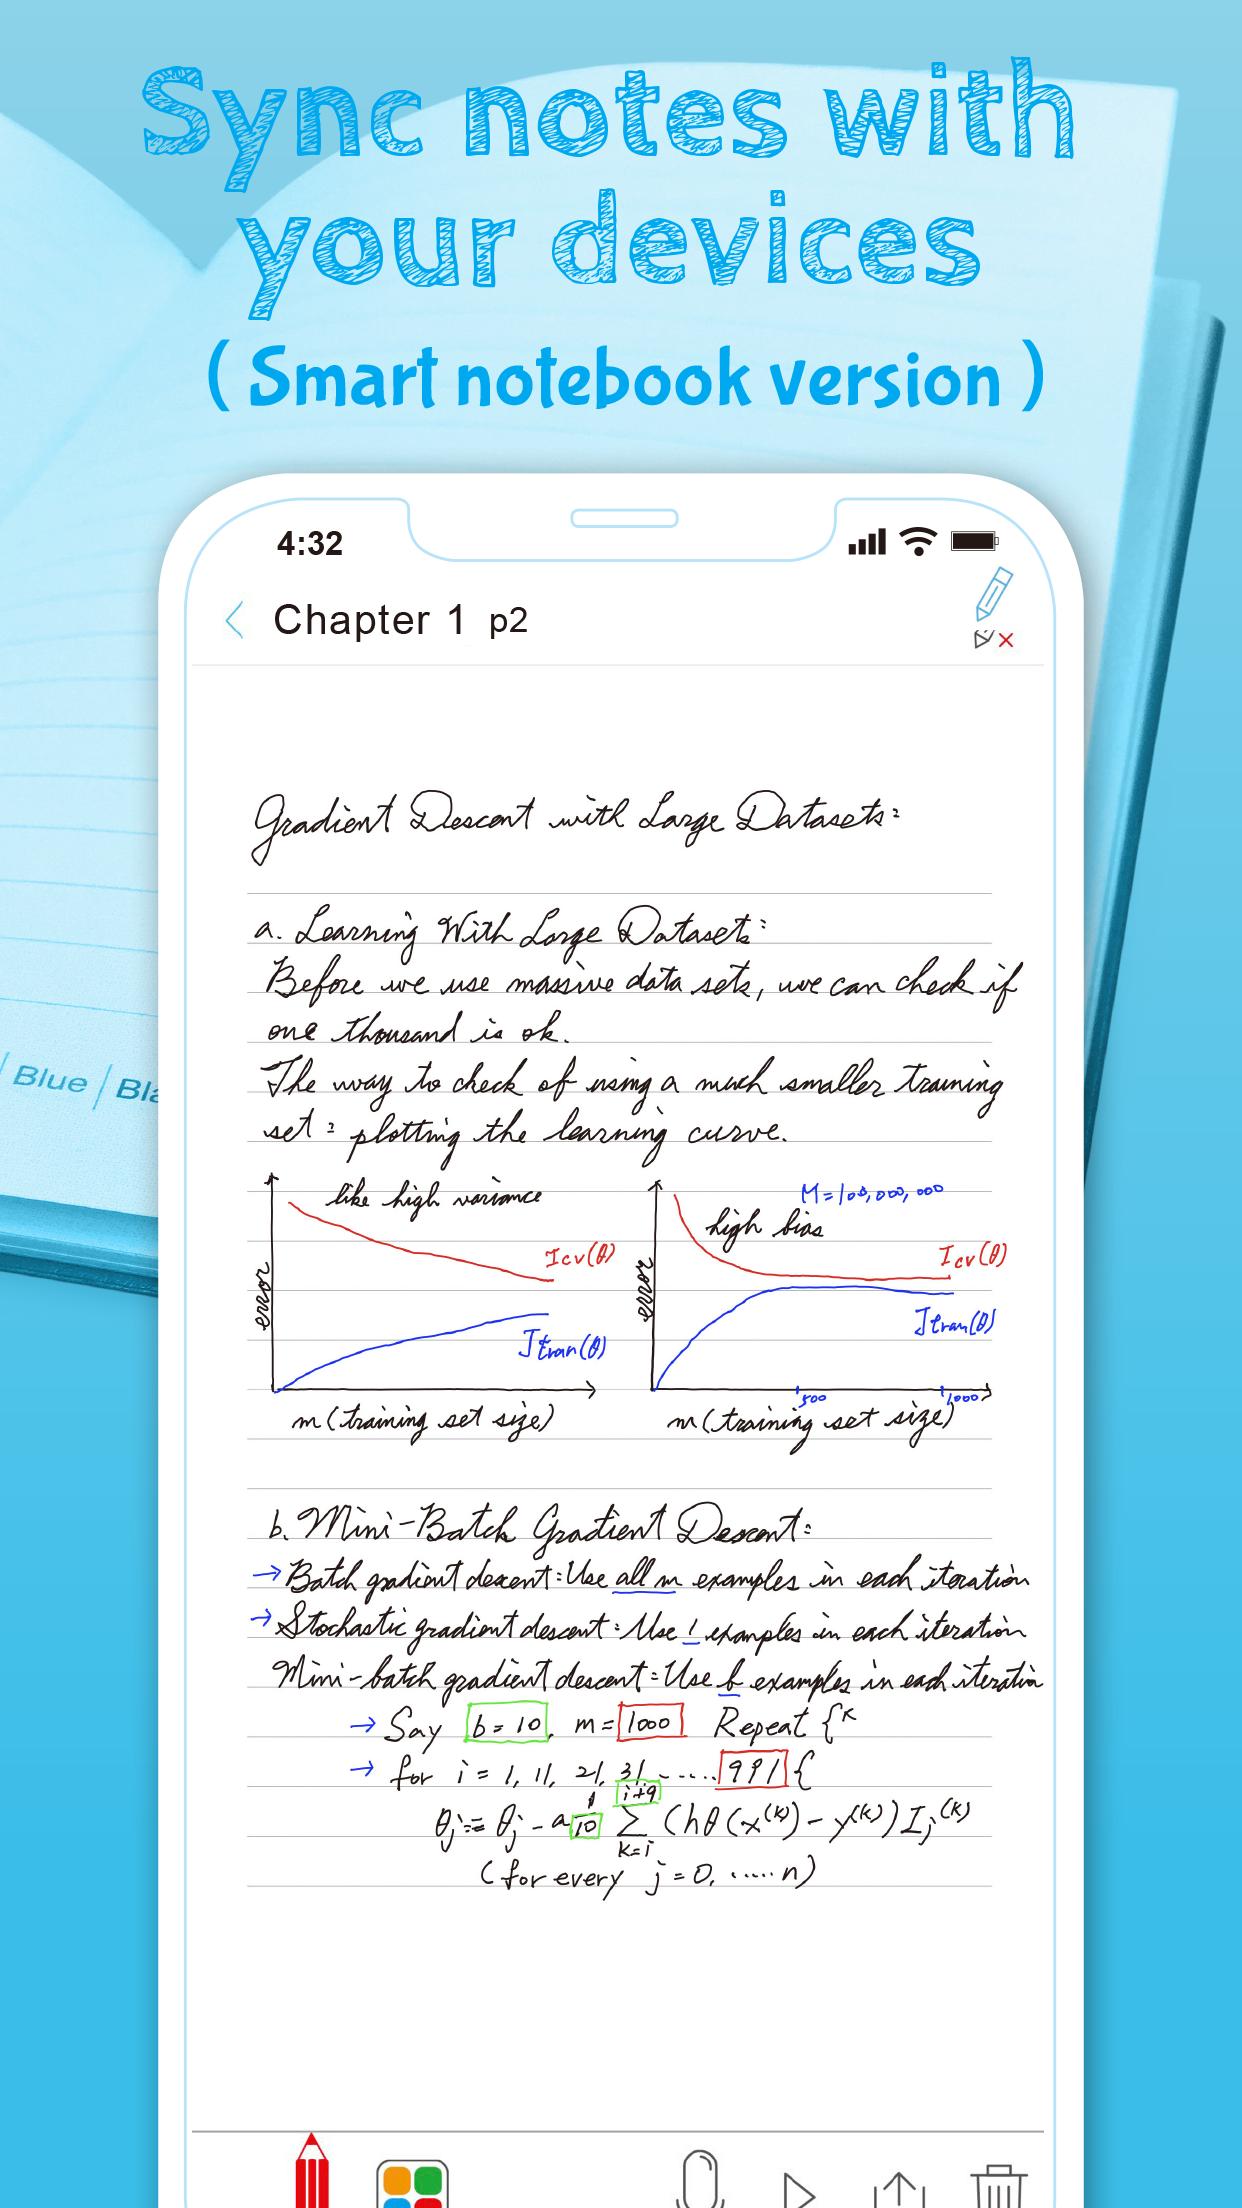 Sync notes with
your devices
( Smart notebook version )
4:32
Chapter 1 p2
Blue / Bla
Gradient Descent with Large Datasets:
a. Learning With Large Datasets:
Before we use massive data sets, we can check if
one thousand is ok.
The way to check of using a much smaller training
set: plotting the learning curve.
like high variance
error
Jcv(θ)
Jtran(θ)
m (training set size)
M=100,000,000
high bias
error
Jcv(θ)
Jtran(θ)
500
1000
m (training set size)
b. Mini-Batch Gradient Descent:
→ Batch gradient descent: Use all m examples in each iteration
→ Stochastic gradient descent: Use 1 examples in each iteration
Mini-batch gradient descent: Use b examples in each iteration
→ Say b=10, m=1000 Repeat {
→ for i = 1, 11, 21, 31, ..... 991 {
θj := θj - a 1/10 i+9 Σ k=i (hθ(x(k)) - y(k)) Ij(k)
(for every j = 0, ..... n)